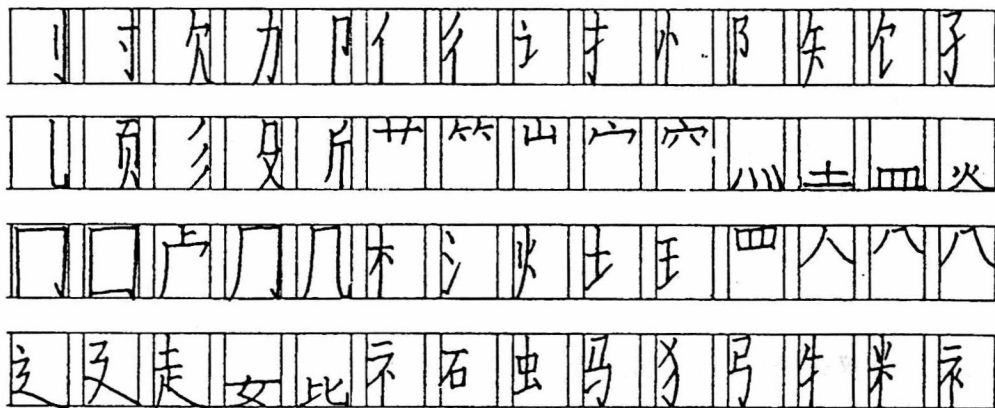 刂 寸 欠 力 卩 亻 彳 讠 扌 忄 阝 矢 饣 孑
乚 页 彡 殳 斤 艹 𥫗 山 宀 穴 灬 土 皿 火
冂 囗 ⺊ 冂 几 木 氵 火 土 王 罒 人 八
辶 廴 走 女 比 礻 石 虫 马 犭 弓 牛 米 衤